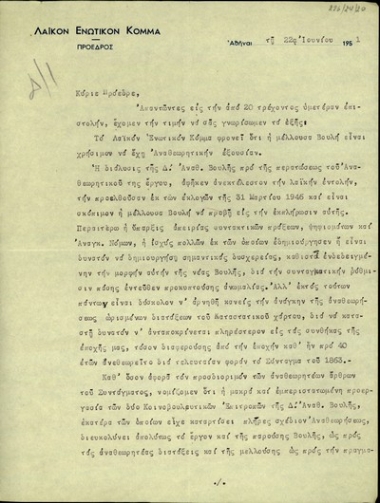 ΛΑΪΚΟΝ ΕΝΩΤΙΚΟΝ ΚΟΜΜΑ
ΠΡΟΕΔΡΟΣ
Ἀθῆναι τῇ 22ᾳ Ἰουνίου 1951
Κύριε Πρόεδρε,
Ἀπαντῶντες εἰς τὴν ἀπὸ 20 τρέχοντος ὑμετέραν ἐπι-
στολήν, ἔχομεν τὴν τιμὴν νὰ σᾶς γνωρίσωμεν τὰ ἑξῆς:
Τὸ Λαϊκὸν Ἑνωτικὸν Κόμμα φρονεῖ ὅτι ἡ μέλλουσα Βουλὴ εἶναι
χρήσιμον νὰ ἔχῃ Ἀναθεωρητικὴν ἐξουσίαν.
Ἡ διάλυσις τῆς Δ' Ἀναθ. Βουλῆς πρὸ τῆς περατώσεως τοῦ Ἀνα-
θεωρητικοῦ της ἔργου, ἀφῆκεν ἀνεκτέλεστον τὴν λαϊκὴν ἐντολήν,
τὴν προελθοῦσαν ἐκ τῶν ἐκλογῶν τῆς 31 Μαρτίου 1946 καὶ εἶναι
σκόπιμον ἡ μέλλουσα Βουλὴ νὰ προβῇ εἰς τὴν ἐκπλήρωσιν αὐτῆς.
Περαιτέρω ἡ ὕπαρξις ἀπειρίας συντακτικῶν πράξεων, ψηφισμάτων καὶ
Ἀναγκ. Νόμων, ἡ ἰσχὺς πολλῶν ἐκ τῶν ὁποίων ἐδημιούργησεν ἢ εἶναι
δυνατὸν νὰ δημιουργήσῃ σημαντικὰς δυσχερείας, καθιστᾷ ἐνδεδειγμέ-
νην τὴν μορφὴν αὐτὴν τῆς νέας Βουλῆς, διὰ τὴν συνταγματικὴν ῥύθμι-
σιν πάσης ἐντεῦθεν προκυπτούσης ἀνωμαλίας. Ἀλλ' ἐκτὸς τούτων
πάντων εἶναι δύσκολον ν' ἀρνηθῇ κανεὶς τὴν ἀνάγκην τῆς ἀναθεωρή-
σεως ὡρισμένων διατάξεων τοῦ καταστατικοῦ χάρτου, διὰ νὰ κατα-
στῇ δυνατὸν ν' ἀνταποκρίνεται πληρέστερον εἰς τὰς συνθήκας τῆς
ἐποχῆς μας, τόσον διαφερούσης ἀπὸ τὴν ἐποχὴν καθ' ἣν πρὸ 40
ἐτῶν ἀνεθεωρεῖτο διὰ τελευταίαν φορὰν τὸ Σύνταγμα τοῦ 1863.
Καθ' ὅσον ἀφορᾷ τὸν προσδιορισμὸν τῶν ἀναθεωρητέων ἄρθρων
τοῦ Συντάγματος, νομίζομεν ὅτι ἡ μακρὰ καὶ ἐμπεριστατωμένη προερ-
γασία τῶν δύο Κοινοβουλευτικῶν Ἐπιτροπῶν τῆς Δ' Ἀναθ. Βουλῆς,
ἑκατέρα τῶν ὁποίων εἶχε καταρτίσει πλῆρες σχέδιον Ἀναθεωρήσεως,
διευκολύνει ἀπολύτως τὸ ἔργον καὶ τῆς παρούσης Βουλῆς, ὡς πρὸς
τὰς ἀναθεωρητέας διατάξεις καὶ τῆς μελλούσης, ὡς πρὸς τὴν πραγμα-
-/-